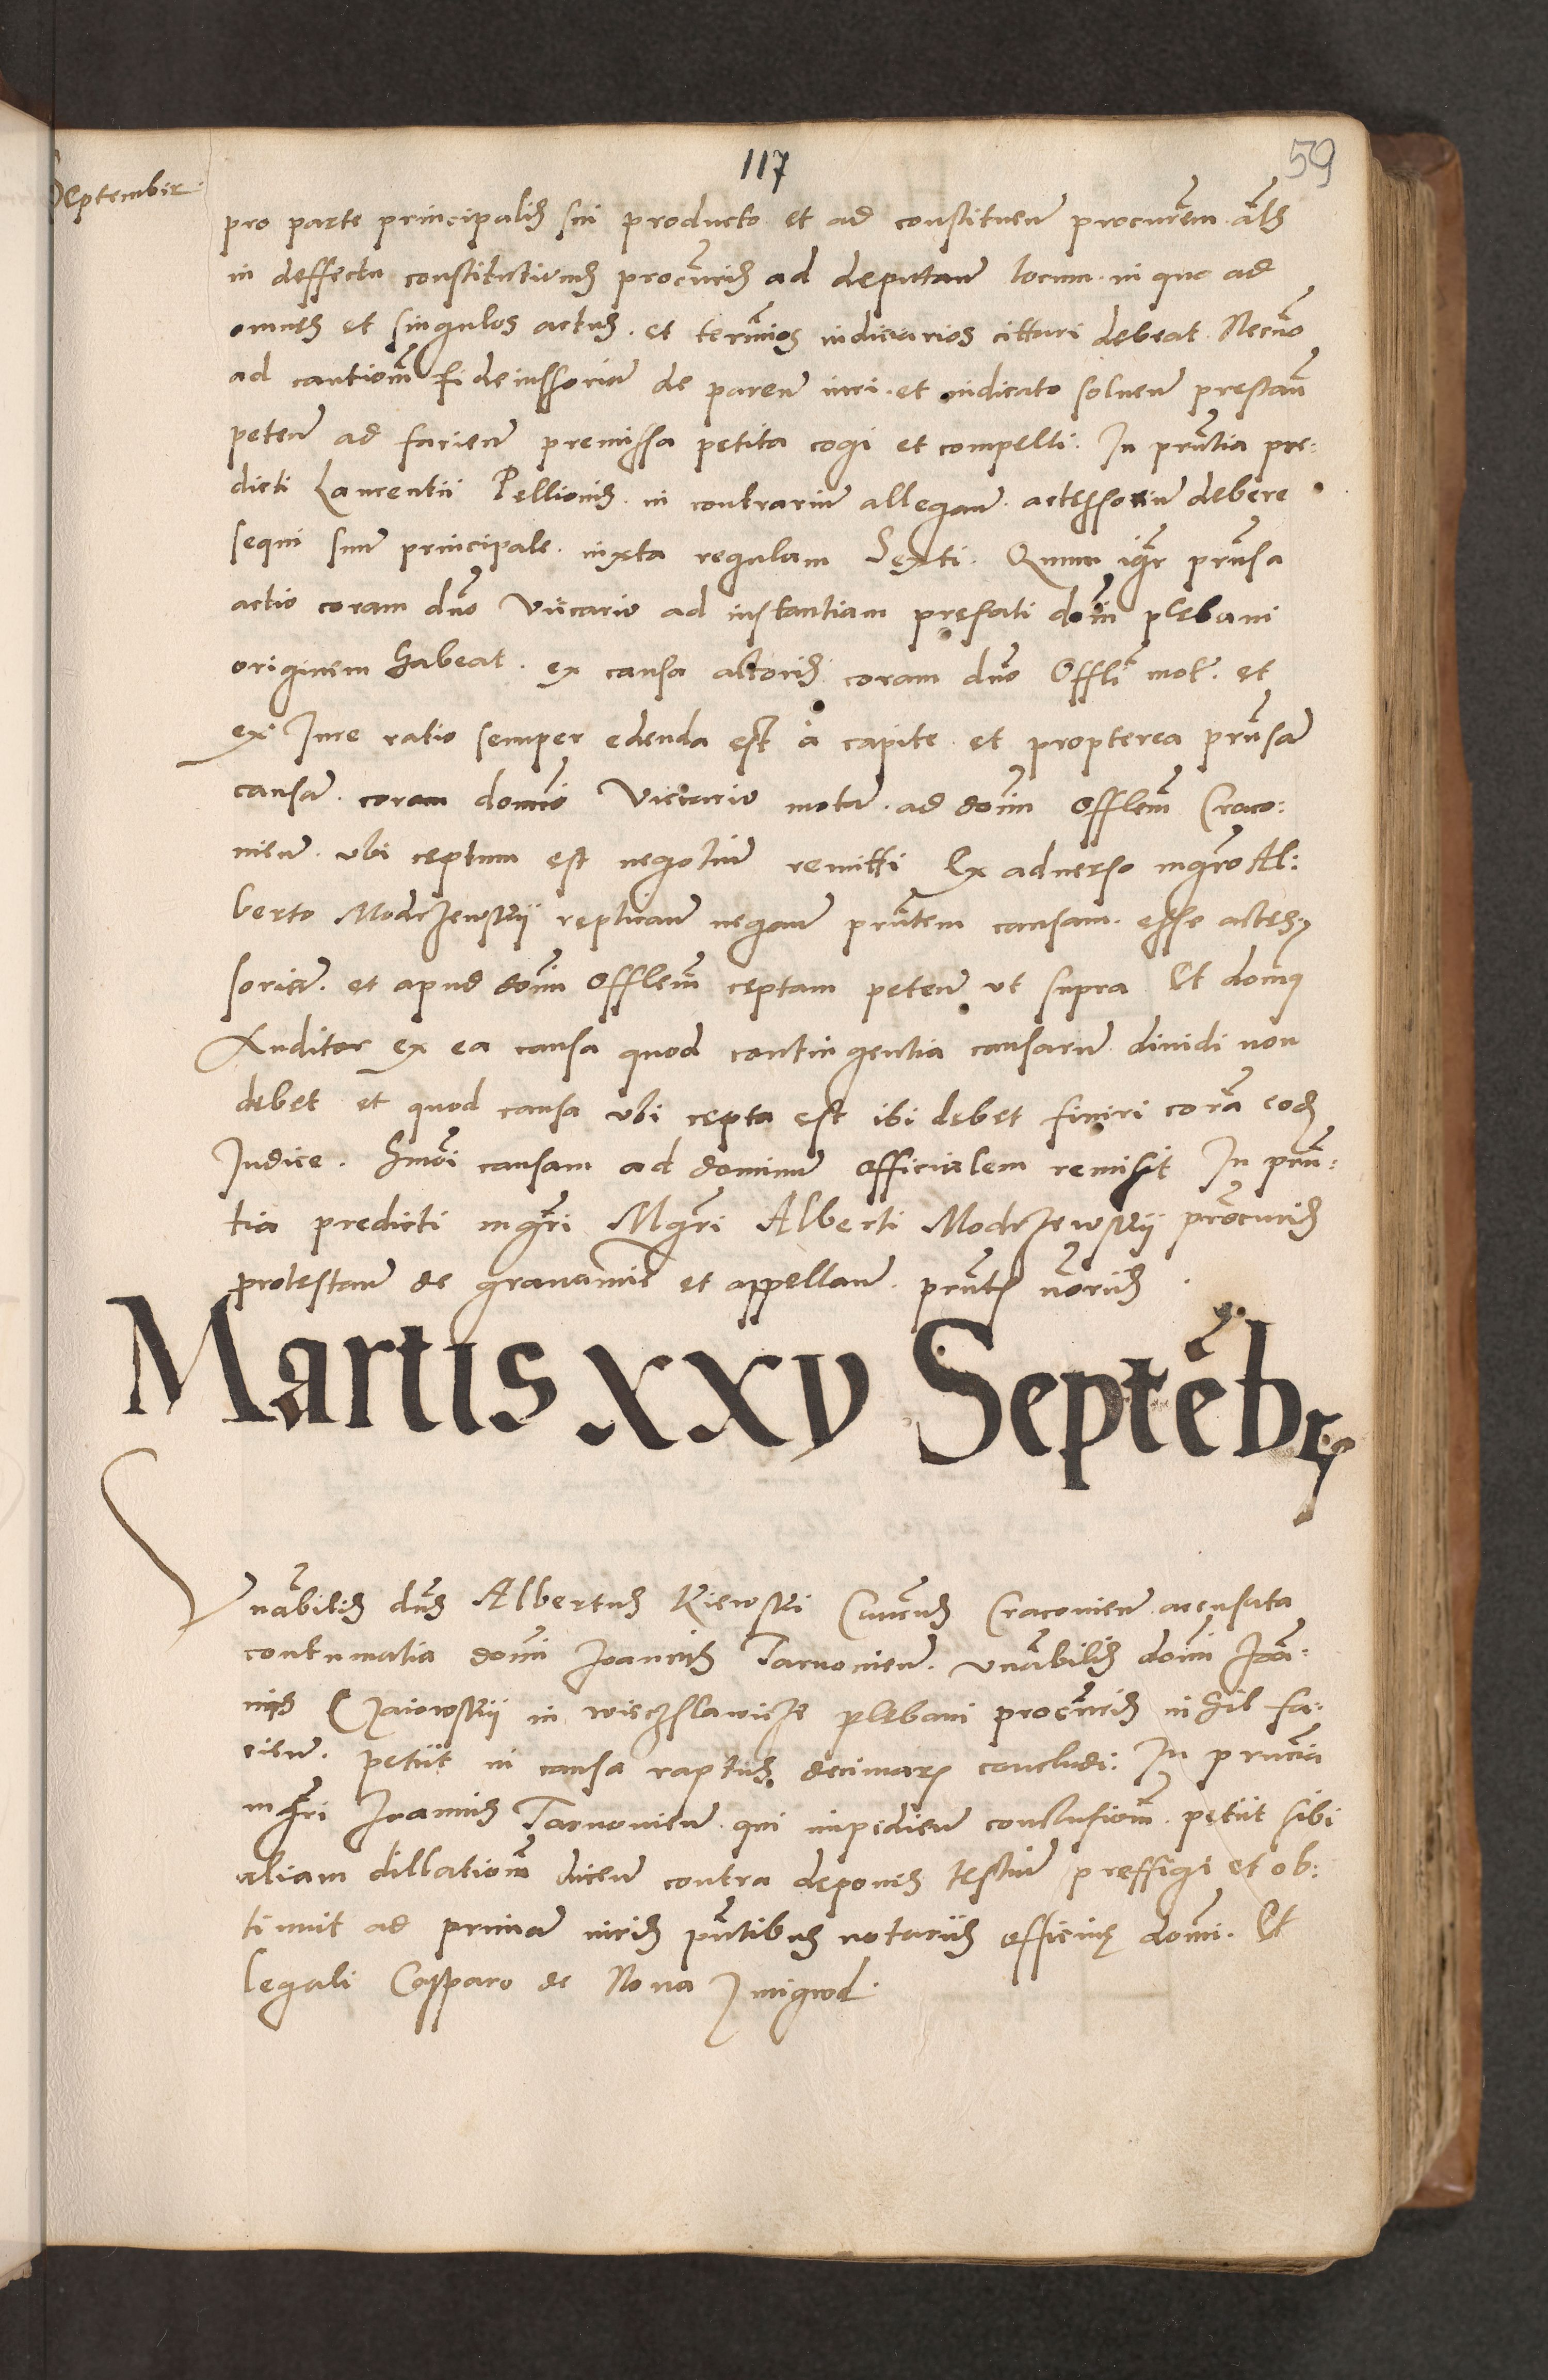 117
59
September
pro parte principalis sui producto et ad constituen̄ procurem̄ al̄s
in deffectu constitutionis procuris̄ ad deputan̄ locum in quo ad
omnes et singulos actus. et termīos iudiciarios cittari debeat. Necno
ad cautionm̄ fideiussoriam̄ de paren̄ iuri. et iudicato soluen̄ prestan̄
peten̄ ad facien̄ premissa petita cogi et compelli. In prn̄tia pre:
dicti Laurentii Pellionis. in contrarium̄ allegan̄. accessorium̄ debere
sequi suum̄ principale. iuxta regulam Sexti. Quum igr̄ prn̄sa
actio coram dn̄o Vicario ad instantiam prefati domī plebani
originem habeat. ex causa actoris coram dn̄o Offli mot̄. et
ex Iure ratio semper edenda est a capite. et propterea prn̄sam̄
causam̄. coram domīo Viccario motam̄. ad domī Offlem̄ Craco:
nien̄. ubi ceptum est negotium̄ remitti Ex aduerso mgr̄o Al:
berto Modrzewskij replican̄ negan̄ prn̄tem causam. esse acces:
soriam̄. et apud domī Offlem̄ ceptam peten̄ ut supra Et domꝰ
Auditor ex ea causa quod contingentia causarum̄ diuidi non
debet et quod causa ubi cepta est ibi debet finiri corā eod̄
Iudice. Hmōi causam ad dominum̄ officialem remisit In prn̄:
tia predicti mgr̄i Mgr̄i Alberti Modrzewskij procuris̄
protestan̄ de grauamīe et appellan̄. prn̄t̄ n̄oriis̄
Martis xxv Septēbꝝ
Vn̄abilis dn̄s Albertus Kiewski Can̄cus Cracouien̄ accusata
contumatia domī Joannis Tarnouien̄. vn̄abilis domī Joā:
nis Czaiowskij in wieczslawicze plebani procuris̄ nihil fa:
cien̄. petiit in causa raptus decimarꝝ concludi: In prn̄cia
mgr̄i Joannis Tarnouien̄ qui impedien̄ conclusionm̄. petiit sibi
aliam dillationm̄ dicen̄ contra deponēs testium̄ preffigi et ob:
tinuit ad primam̄ iuris prn̄tibus notariis officiuꝫ domī. Et
legali Casparo de Noua Zmigrod.